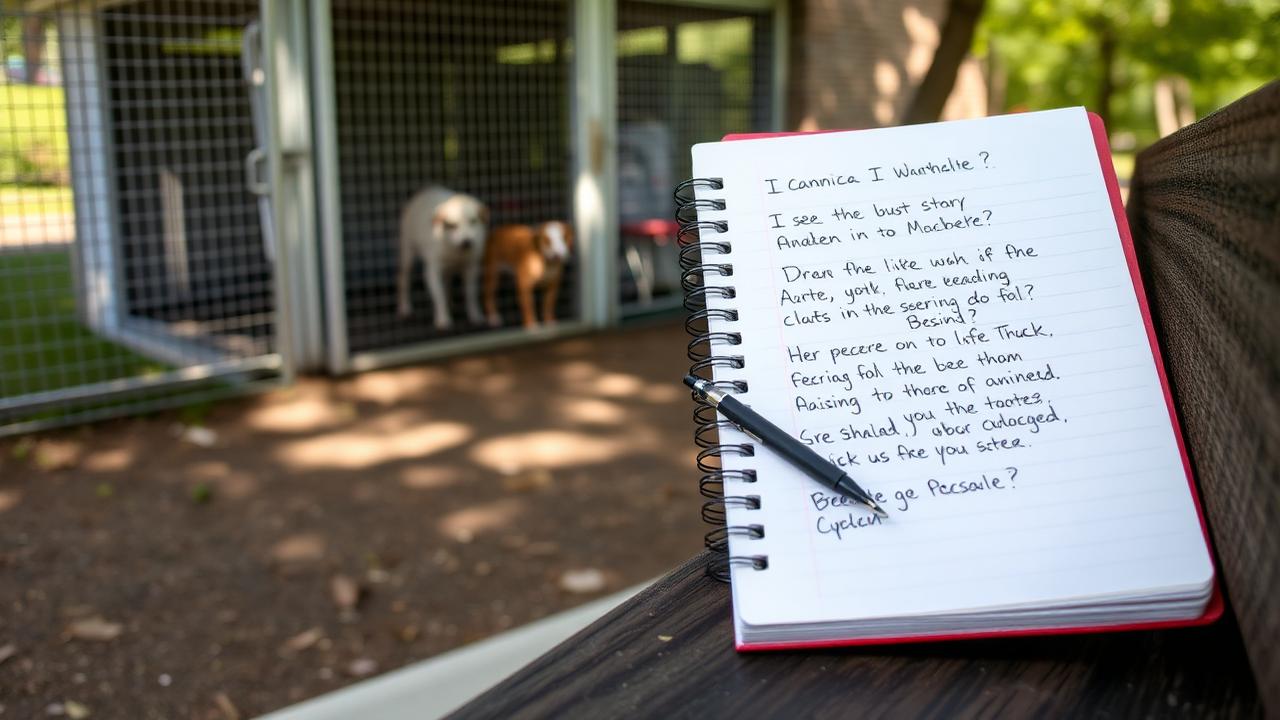 I Cannica I Warthelte?
I see the bust story
Analen in to Macbete?
Drare the like wah if the
Aarte, yolk, flare keading
clats in the seering do fal?
Besind?
Her pecere on to Life Thuck.
fecriag fall the bee tham
Aaising to thare of aninerd.
Sre shalad, you the tootes,
abor culocged,
us fke you sitee.
ge Pecsadle?